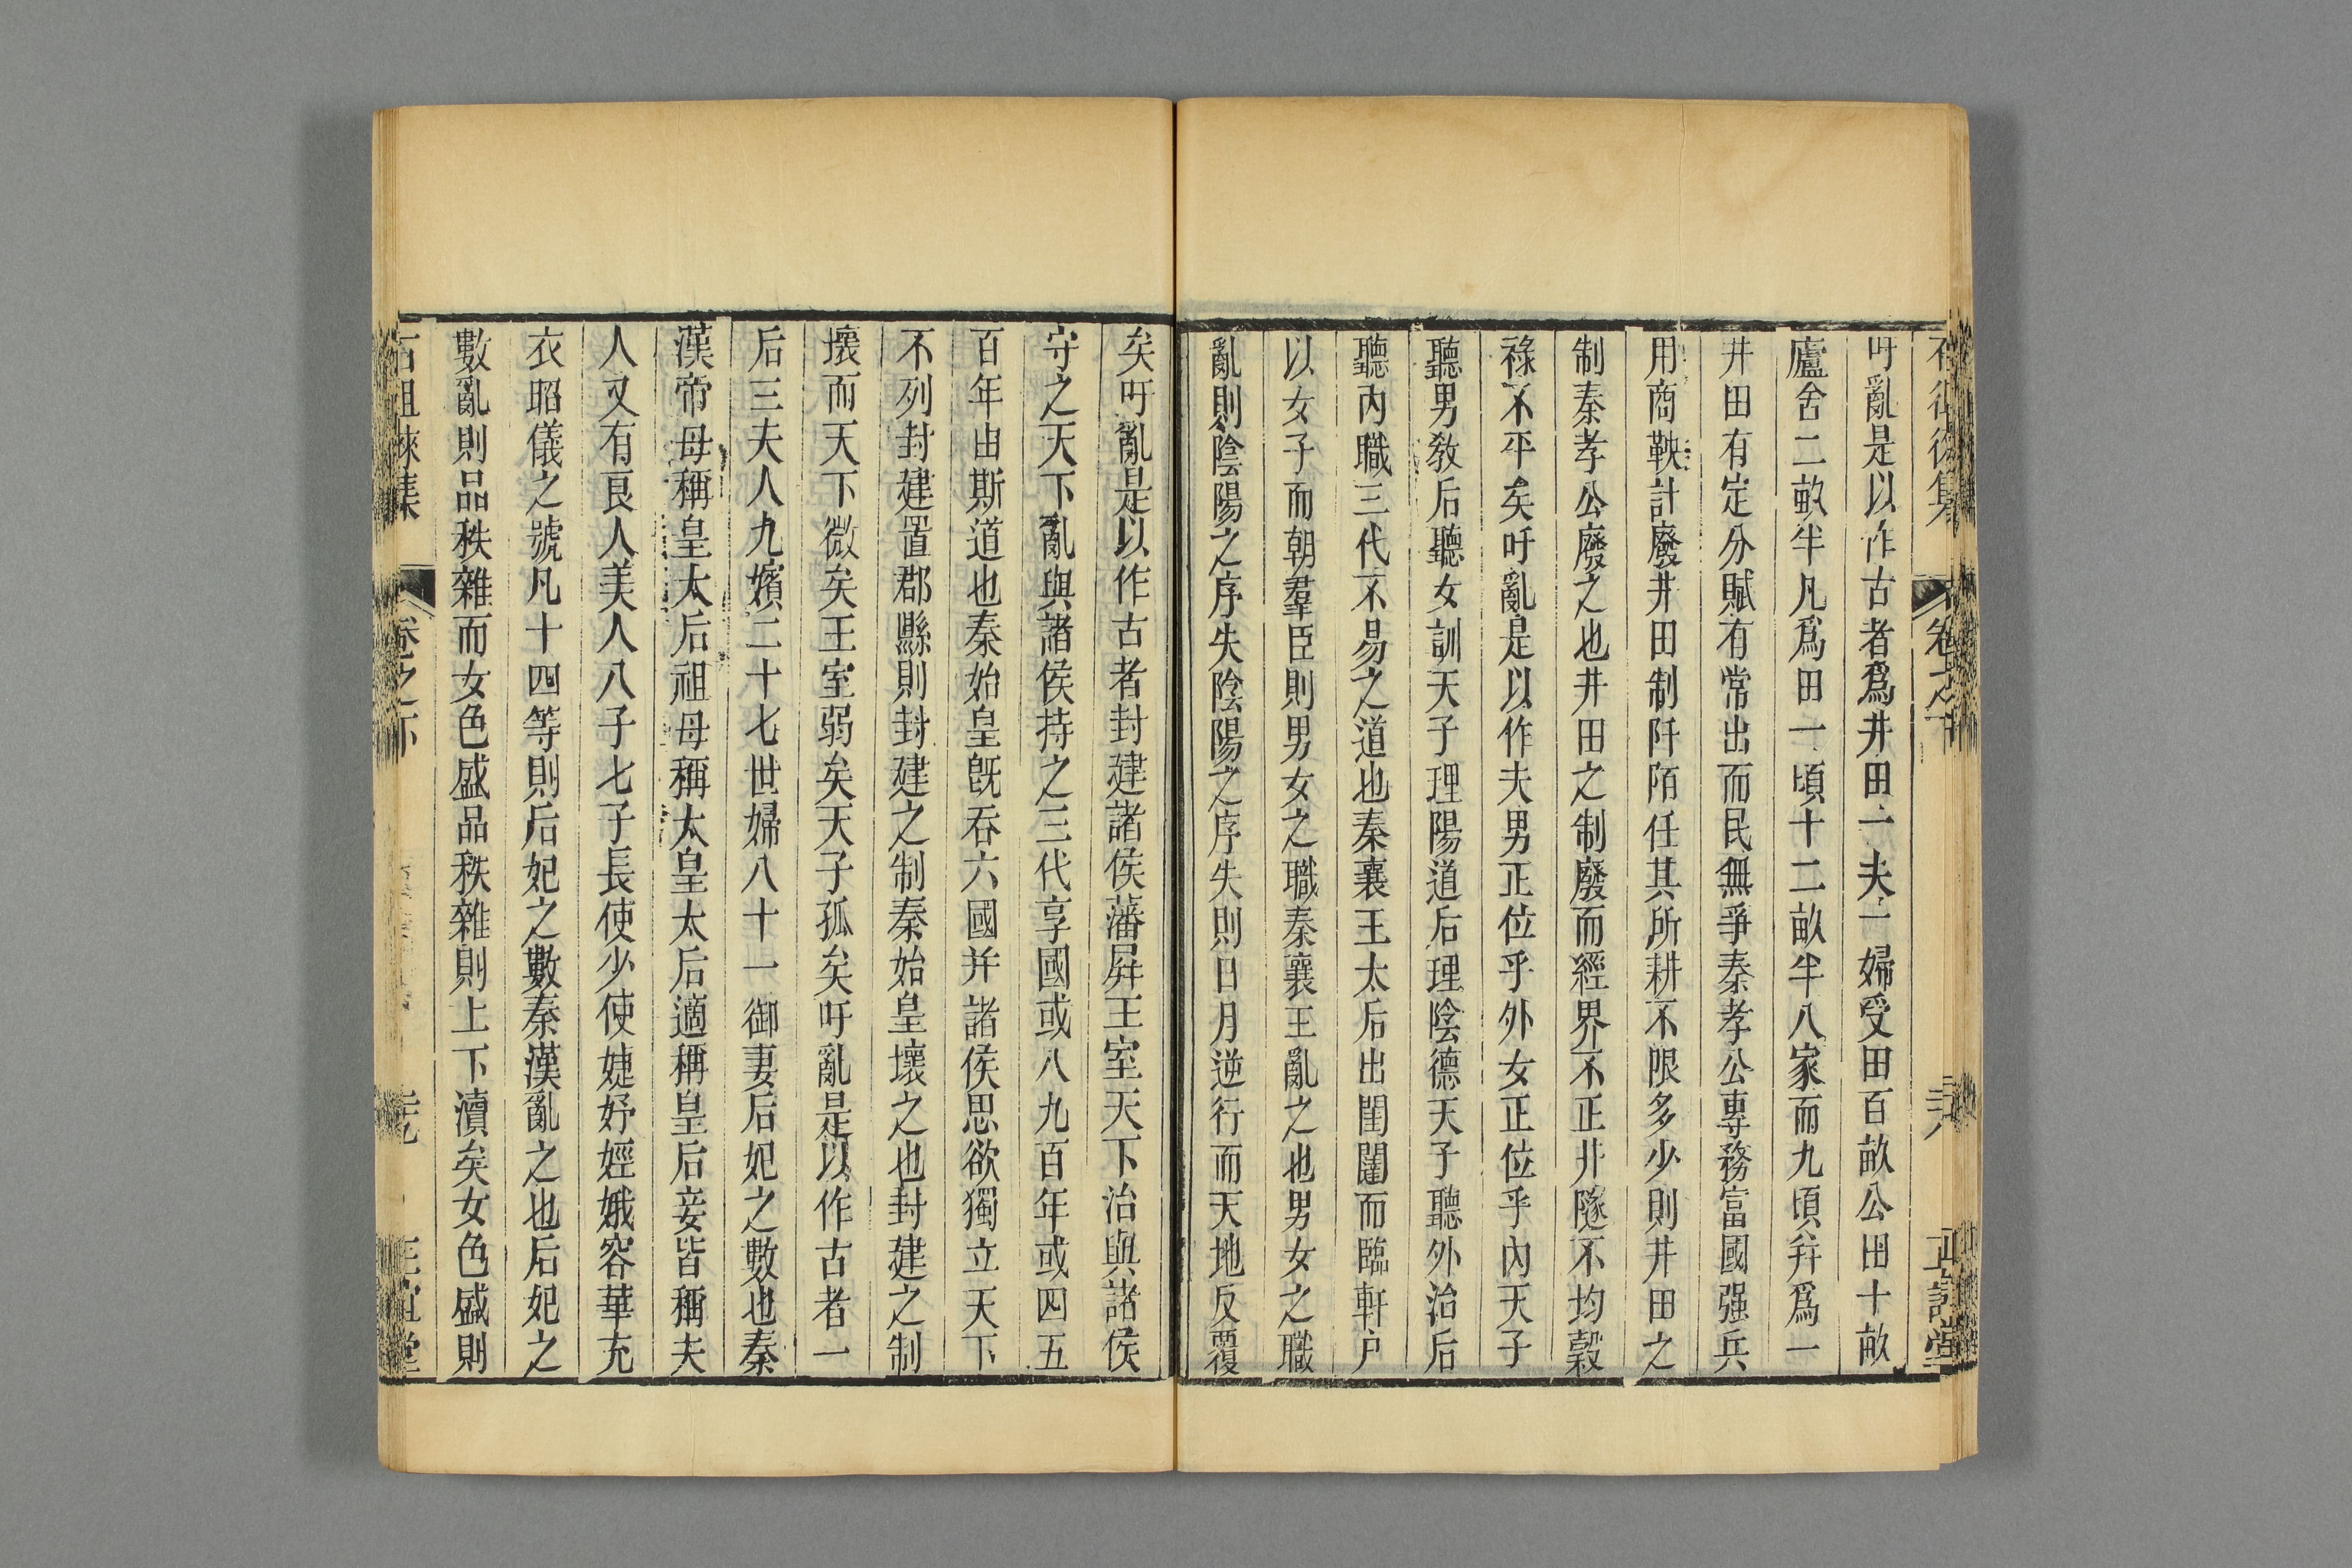 吁亂是以作古者爲井田一夫一婦受田百畝公田十畝
廬舍二畝半凡爲田一頃十二畝半八家而九頃幷爲一
井田有定分賦有常出而民無爭秦孝公專務富國强兵
用商鞅計廢井田制阡陌任其所耕不限多少則井田之
制秦孝公廢之也井田之制廢而經界不正井隧不均穀
祿不平矣吁亂是以作夫男正位乎外女正位乎內天子
聽男敎后聽女訓天子理陽道后理陰德天子聽外治后
聽內職三代不易之道也秦襄王太后出閨闥而臨軒户
以女子而朝羣臣則男女之職秦襄王亂之也男女之職
亂則陰陽之序失陰陽之序失則日月逆行而天地反覆
矣吁亂是以作古者封建諸侯藩屛王室天下治與諸侯
守之天下亂與諸侯持之三代享國或八九百年或四五
百年由斯道也秦始皇旣吞六國幷諸侯思欲獨立天下
不列封建置郡縣則封建之制秦始皇壞之也封建之制
壞而天下微矣王室弱矣天子孤矣吁亂是以作古者一
后三夫人九嬪二十七世婦八十一御妻后妃之數也秦
漢帝母稱皇太后祖母稱太皇太后適稱皇后妾皆稱夫
人又有良人美人八子七子長使少使婕妤娙娥容華充
衣昭儀之號凡十四等則后妃之數秦漢亂之也后妃之
數亂則品秩雜而女色盛品秩雜則上下瀆矣女色盛則
卷之下